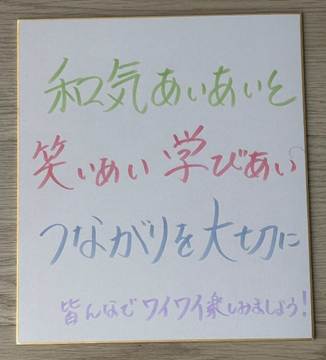 和気あいあいと
笑いあい 学びあい
つながりを大切に
皆んなでワイワイ楽しみましょう!